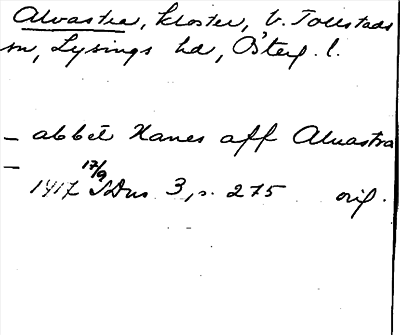 Alvastra, kloster, V. Tollstads
sn, Lysings hd, Österg. l.
– abbet Hanes aff Aluastra
–
1417 17/9 SDns 3, s. 275 orig.